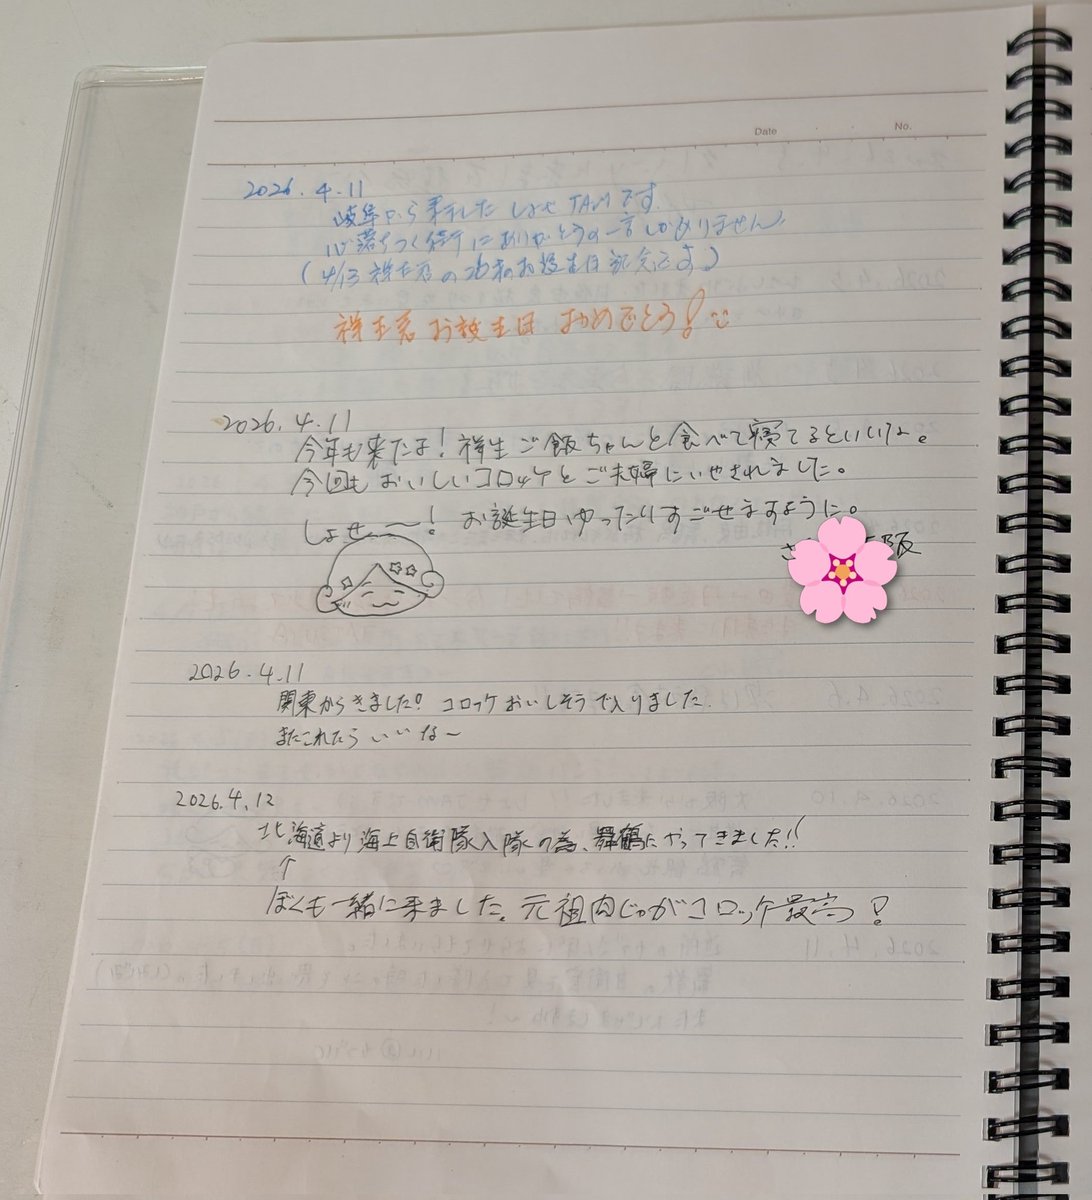 Date
No.
2026.4.11
岐阜から来ました しょせTAMです。
心落ちつく街にありがとうの一言しかありません
(4/13 祥生君の お誕生日記念です。)
祥生君 お誕生日 おめでとう!
2026.4.11
今年も来たよ!祥生ご飯ちゃんと食べて寝てるといいな。
今回もおいしいコロッケとご夫婦にいやされました。
しょせ〜〜! お誕生日ゆったりすごせますように。
阪
2026.4.11
関東からきました! コロッケおいしそうで入りました.
またこれたらいいな〜
2026.4.12
北海道より海上自衛隊入隊の為、舞鶴にやってきました!!
↑
ぼくも一緒に来ました。元祖肉じゃがコロッケ最高!